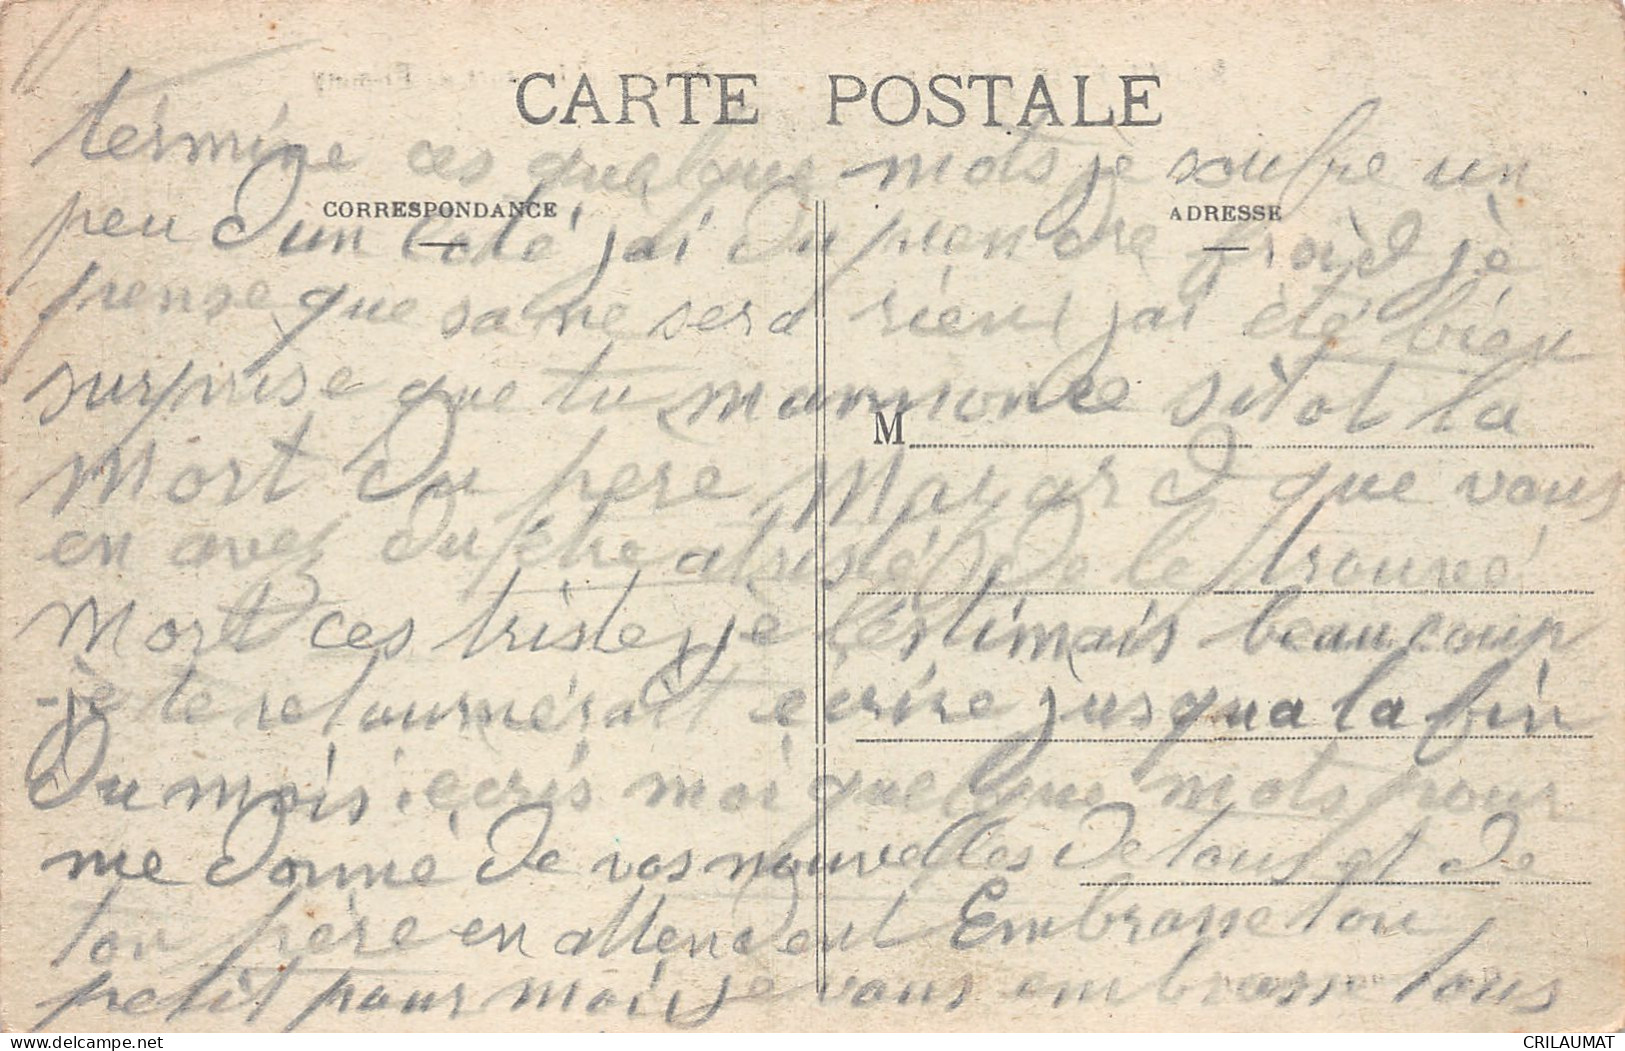 CARTE POSTALE
termine ces quelque mots je soufre un
CORRESPONDANCE
ADRESSE
peu d'un coté j'ai du prendre froid je
pense que sa ne sera rien j'ai été bien
surprise que tu mannonce sitot la
M
Mort du père que vous
en avez du être atristé de le trouvé
Mort ces triste je l'estimais beaucoup
je te retournérait ecrire jusqua la fin
du mois ecris moi quelque mots pour
me donné de vos nouvelles de tous et de
ton père en attendent Embrasse ton
petit pour moi je vous embrasse tous
CRILAUMAT